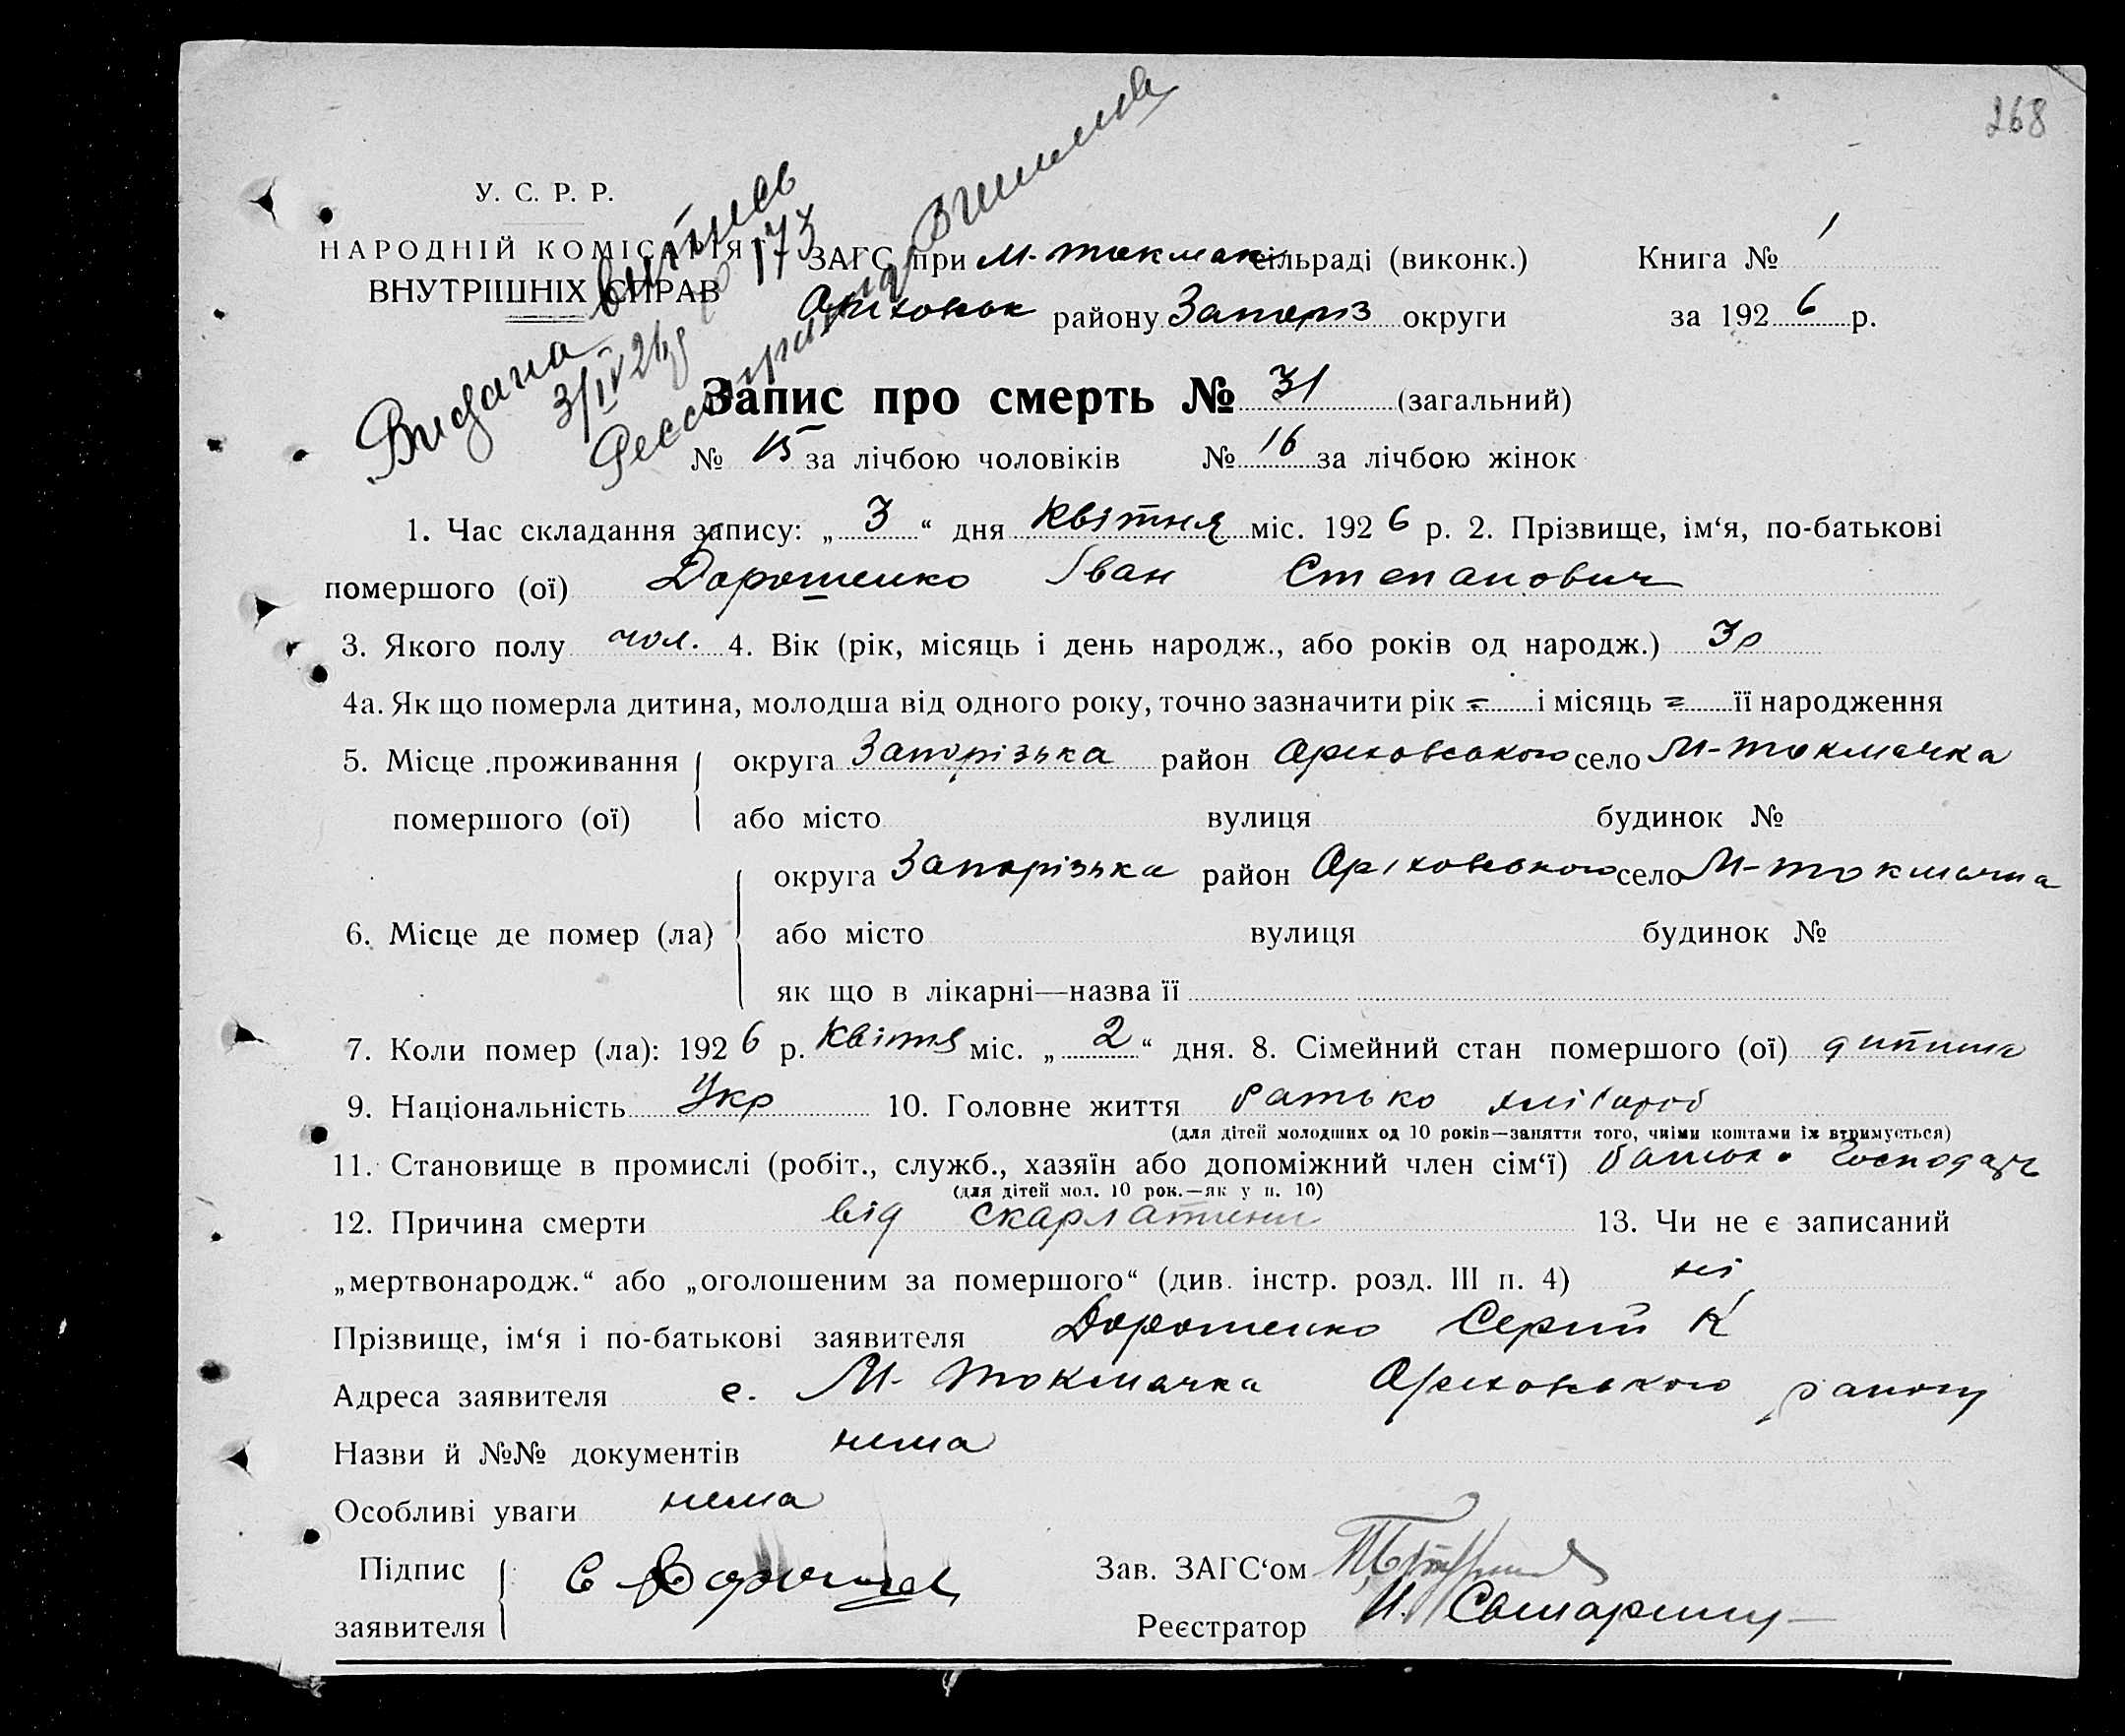 268
У. С. Р. Р.
НАРОДНІЙ КОМІСАРІЯТ
ВНУТРІШНІХ СПРАВ
Видана випись
3/IV 26 р № 173
ЗАГС при М-токмак сільраді (виконк.) Книга № 1
Оріховськ району Запоріз округи за 1926 р.
Запис про смерть № 31 (загальний)
№ 15 за лічбою чоловіків № 16 за лічбою жінок
1. Час складання запису: „ 3 “ дня Квітня міс. 1926 р. 2. Прізвище, ім‘я, по-батькові
помершого (ої) Дорошенко Іван Степанович
3. Якого полу чол. 4. Вік (рік, місяць і день народж., або років од народж.) 3 р
4а. Як що померла дитина, молодша від одного року, точно зазначити рік = і місяць = її народження
5. Місце проживання округа Запорізька район Оріховського село М-токмачка
помершого (ої) або місто вулиця будинок №
округа Запорізька район Оріховського село М-токмачка
6. Місце де помер (ла) або місто вулиця будинок №
як що в лікарні—назва її
7. Коли помер (ла): 1926 р. Квітня міс. „ 2 “ дня. 8. Сімейний стан помершого (ої) дитина
9. Національність Укр 10. Головне життя батько хлібороб
(для дітей молодших од 10 років—заняття того, чиїми коштами їх втримується)
11. Становище в промислі (робіт., служб., хазяїн або допоміжний член сім‘ї) батько господарь
(для дітей мол. 10 рок.—як у п. 10)
12. Причина смерти від скарлатини 13. Чи не є записаний
„мертвонародж.“ або „оголошеним за помершого“ (див. інстр. розд. III п. 4) ні
Прізвище, ім‘я і по-батькові заявителя Дорошенко Сергій К
Адреса заявителя с. М-Токмачка Оріховського району
Назви й №№ документів нема
Особливі уваги нема
Підпис С Дорошен Зав. ЗАГС‘ом
заявителя Реєстратор И.